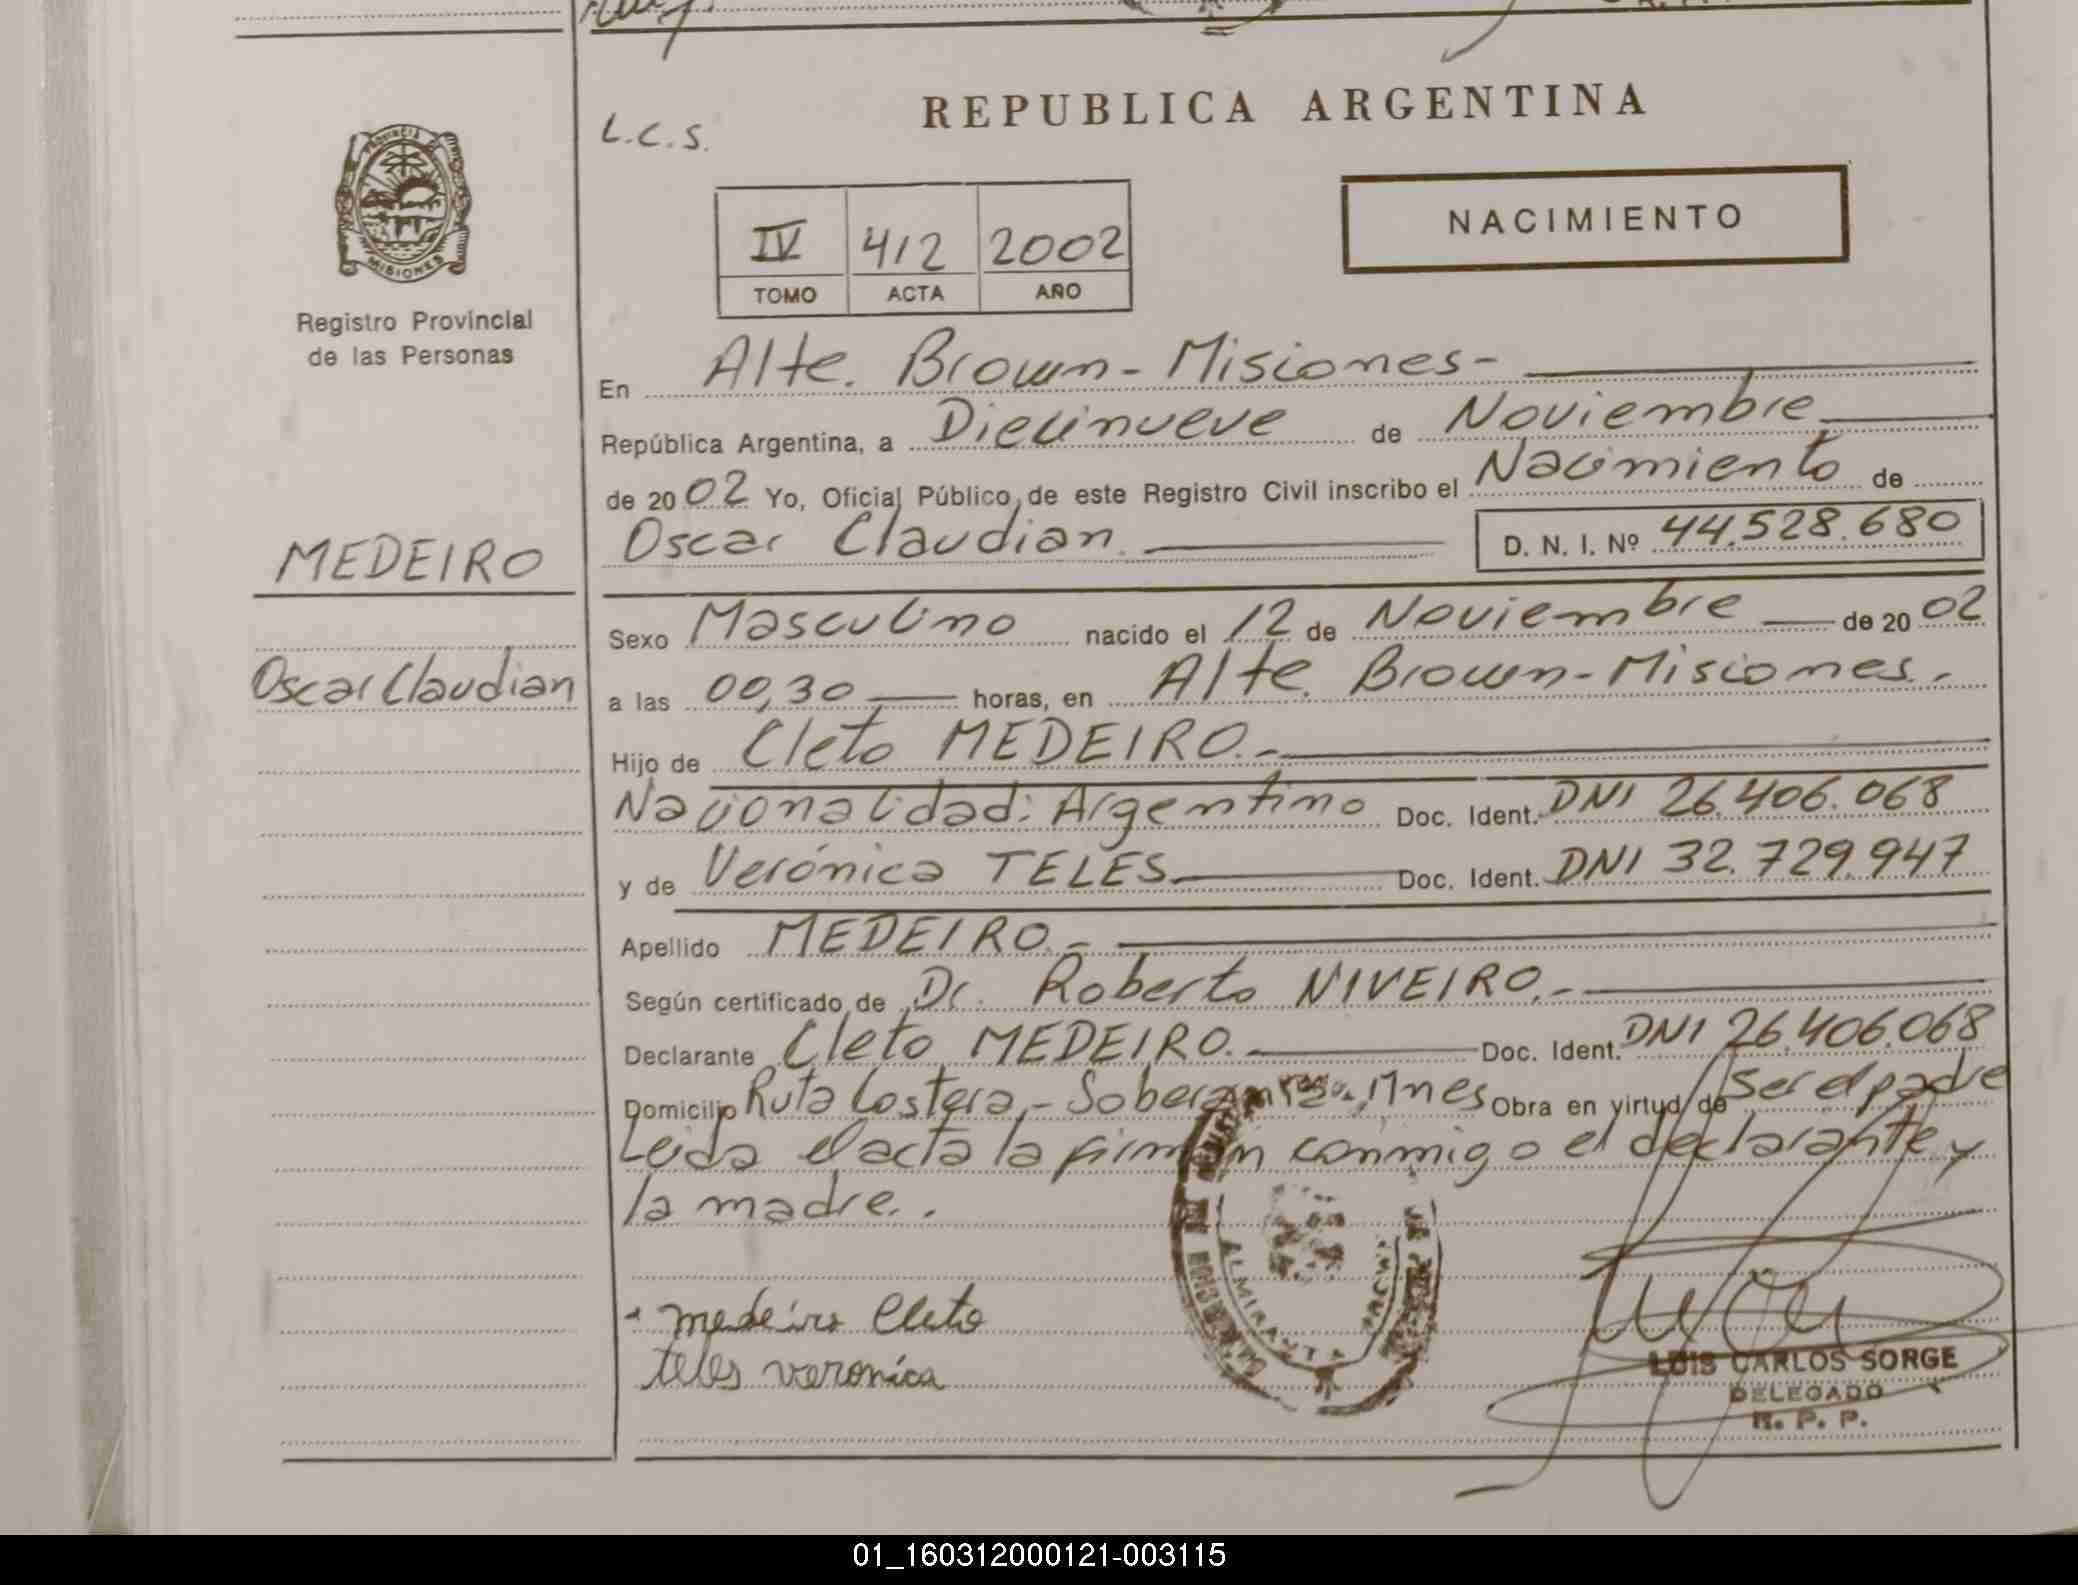 REPUBLICA ARGENTINA
L.C.S.
PROVINCIA
MISIONES
Registro Provincial
de las Personas
NACIMIENTO
IV 412 2002
TOMO ACTA AÑO
En Alte. Brown - Misiones -
República Argentina, a Diecinueve de Noviembre
de 2002 Yo, Oficial Público, de este Registro Civil inscribo el Nacimiento de
Oscar Claudian. D. N. I. Nº 44.528.680
MEDEIRO
Oscar Claudian
Sexo Masculino nacido el 12 de Noviembre de 2002
a las 00,30 horas, en Alte. Brown - Misiones.
Hijo de Cleto MEDEIRO.-
Nacionalidad: Argentino Doc. Ident. DNI 26.406.068
y de Verónica TELES Doc. Ident. DNI 32.729.947
Apellido MEDEIRO.-
Según certificado de Dr. Roberto NIVEIRO.-
Declarante Cleto MEDEIRO. Doc. Ident. DNI 26.406.068
Domicilio Ruta Costera - Soberania. Mnes Obra en virtud de Ser el padre
Leida el acta la firman conmigo el declarante y
la madre..
medeiro Cleto
teles veronica
ALMIRANTE
LUIS CARLOS SORGE
DELEGADO
R. P. P.
01_160312000121-003115